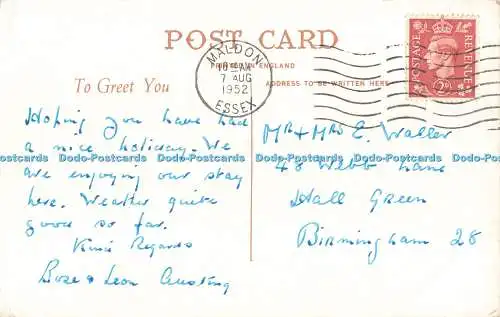 POST CARD
PRINTED IN ENGLAND
To Greet You
ADDRESS TO BE WRITTEN HERE
MALDON
AM
7 AUG
1952
ESSEX
POSTAGE
REVENUE
Hoping you have had
a nice holiday. We
are enjoying our stay
here. Weather quite
good so far.
Kind Regards
Rose & Leon
Mr + Mrs E. Waller
48 Webb Lane
Hall Green
Birmingham 28
Dodo-Postcards Dodo-Postcards Dodo-Postcards Dodo-Postcards Dodo-Postcards Dodo-Postcards Dodo-Postcards